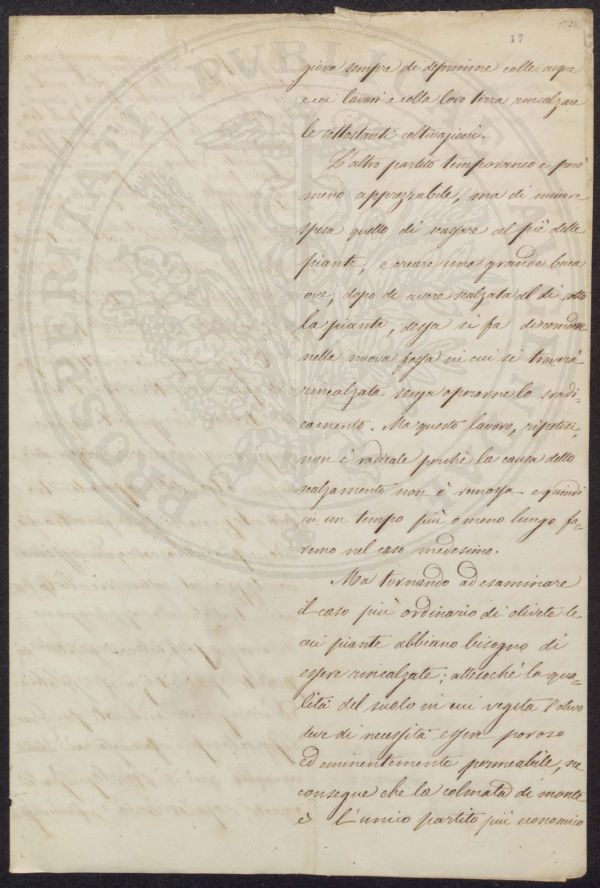 17
giova sempre di deprimere colle acque
e coi lavori e colla loro terra rincalzare
le sottostanti coltivazioni.
L'altro partito temporaneo e però
meno apprezzabile, ma di minore
spesa quello di scassare al piè delle
piante, e creare una grande buca
ove, dopo di avere scalzata al di sotto
la pianta, dessa si fa discendere
nella nuova fossa in cui si troverà
rincalzata senza operarne lo sradi-
camento. Ma questo lavoro, ripetesi,
non è radicale perchè la causa dello
scalzamento non è rimossa e quindi
in un tempo più o meno lungo sa-
remo nel caso medesimo.
Ma tornando ad esaminare
il caso più ordinario di oliveta le
cui piante abbiano bisogno di
essere rincalzate; attesochè la qua-
lità del suolo in cui vegeta l'olivo
deve di necessità esser poroso
ed eminentemente permeabile, ne
consegue che la colmata di monte
è l'unico partito più economico
PROSPERITATI PVBLICAE AVGENDAE